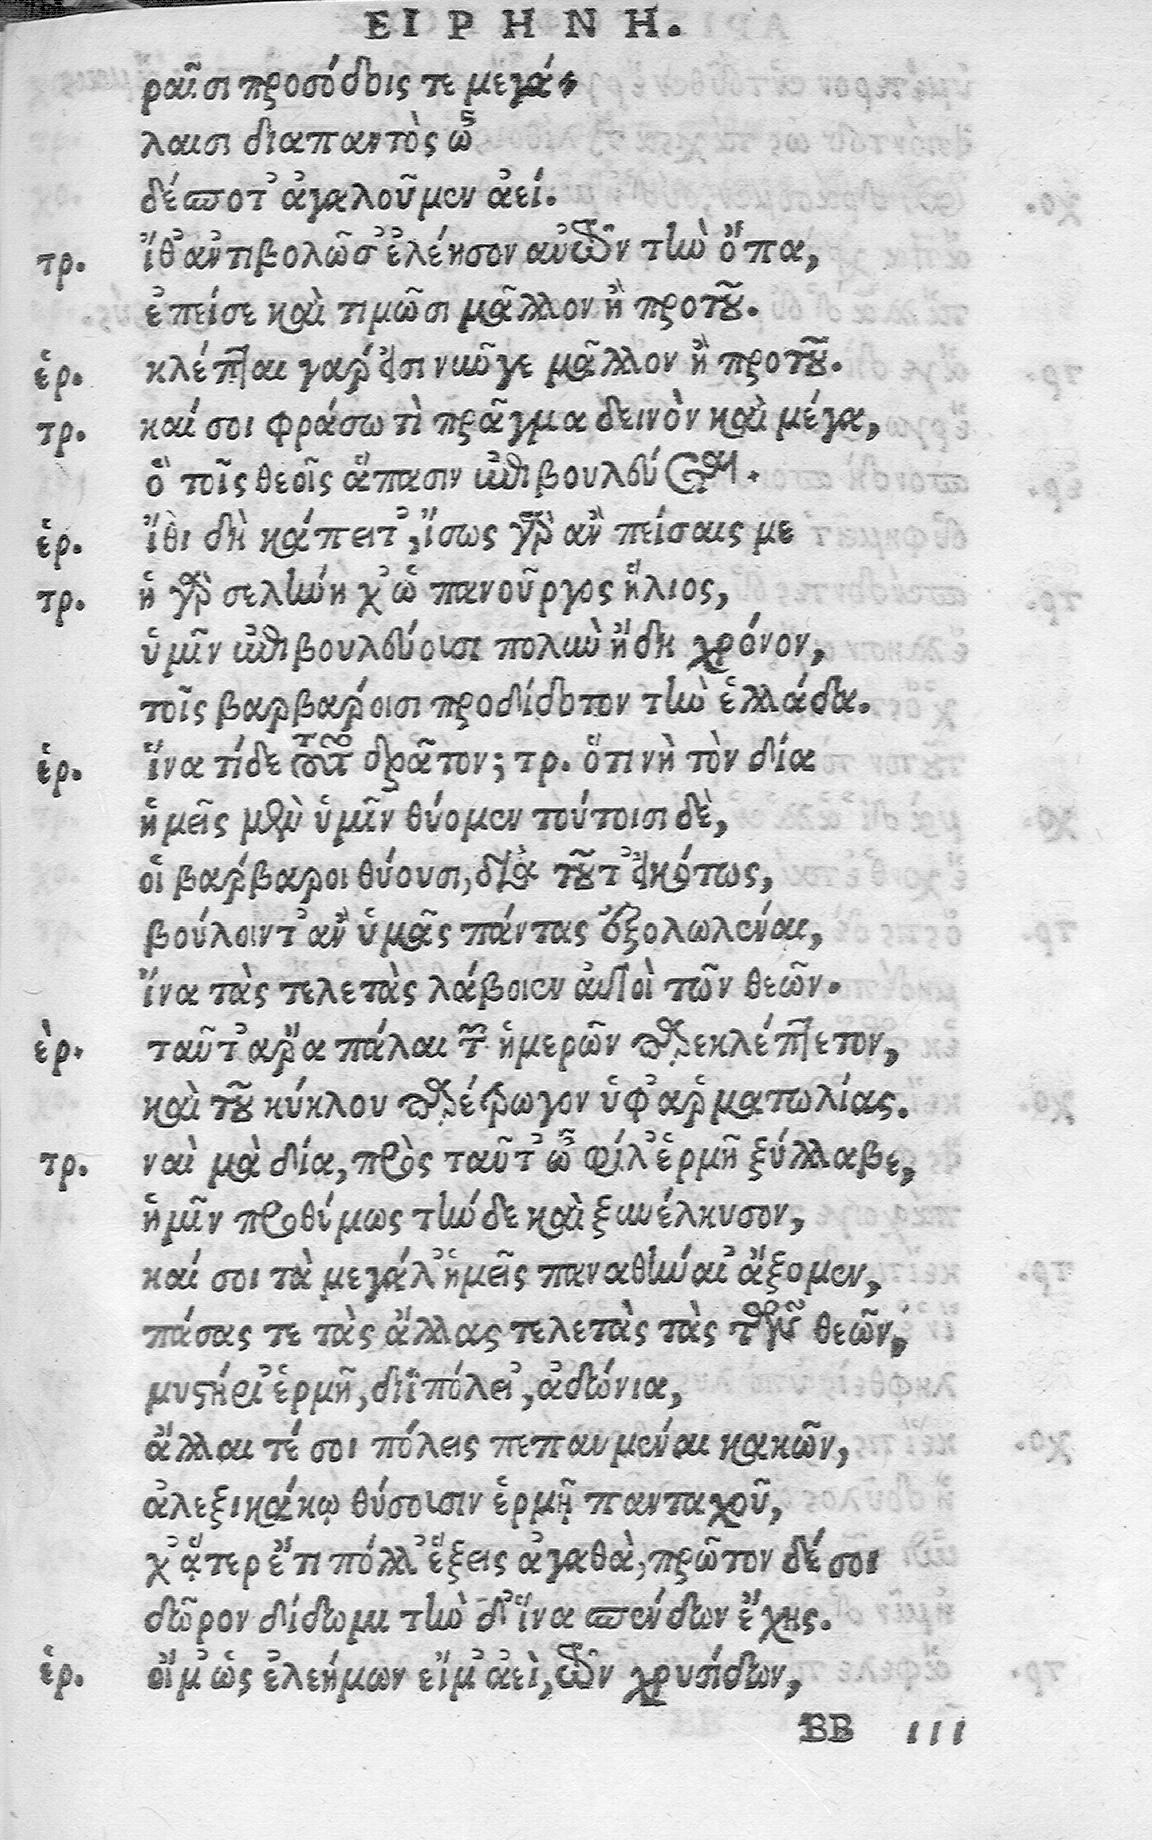 ΕΙΡΗΝΗ.
ραῖσι προσόδοις τε μεγά-
λαισι διαπαντὸς ὦ
δέσποτ' ἀγαλοῦμεν ἀεί.
τρ. ἴθ' ἀντιβολῶ σ' ἐλέησον αὐτῶν τὴν ὄπα,
ἐπείσε καὶ τιμῶσι μᾶλλον ἢ προτοῦ.
ἑρ. κλέπται γάρ εἰσι νιῶγε μᾶλλον ἢ προτοῦ.
τρ. καί σοι φράσω τὶ πρᾶγμα δεινὸν καὶ μέγα,
ὃ τοῖς θεοῖς ἅπασιν ἐπιβουλεύεται.
ἑρ. ἴθι δὴ κάπειτ', ἴσως γὰρ ἂν πείσαις με
τρ. ἡ γὰρ σελήνη χ' ὡ πανοῦργος ἥλιος,
ὑμῖν ἐπιβουλεύοισι πολὺν ἤδη χρόνον,
τοῖς βαρβάροισι προδίδοτον τὴν ἑλλάδα.
ἑρ. ἵνα τίδε τοῦτο δρᾶτον; τρ. ὅτι νὴ τὸν δία
ἡμεῖς μὲν ὑμῖν θύομεν τούτοισι δὲ,
οἱ βάρβαροι θύουσι, διὰ τοῦτ' εἰκότως,
βούλοιντ' ἂν ὑμᾶς πάντας ἐξολωλέναι,
ἵνα τὰς τελετὰς λάβοιεν αὐτοὶ τῶν θεῶν.
ἑρ. ταῦτ' ἄρα πάλαι τῶν ἡμερῶν παρεκλέπτετον,
καὶ τοῦ κύκλου παρέτρωγον ὑφ' ἁρματωλίας.
τρ. ναὶ μὰ δία, πρὸς ταῦτ' ὦ φίλ' ἑρμῆ ξύλλαβε,
ἡμῖν προθύμως τήνδε καὶ ξυνέλκυσον,
καί σοι τὰ μεγάλ' ἡμεῖς παναθήναι' ἄξομεν,
πάσας τε τὰς ἄλλας τελετὰς τὰς τῶν θεῶν,
μυστήρι' ἑρμῆ, διϊπόλει', ἀδώνια,
ἄλλαι τέ σοι πόλεις πεπαυμέναι κακῶν,
ἀλεξικάκῳ θύσοισιν ἑρμῇ πανταχοῦ,
χ' ἅτερ ἔτι πόλλ' ἕξεις ἀγαθὰ, πρῶτον δέ σοι
δῶρον δίδωμι τὴν δ' ἵνα σπένδων ἔχῃς.
ἑρ. οἴμ' ὡς ἐλεήμων εἴμ' ἀεὶ, τῶν χρυσίδων,
BB III